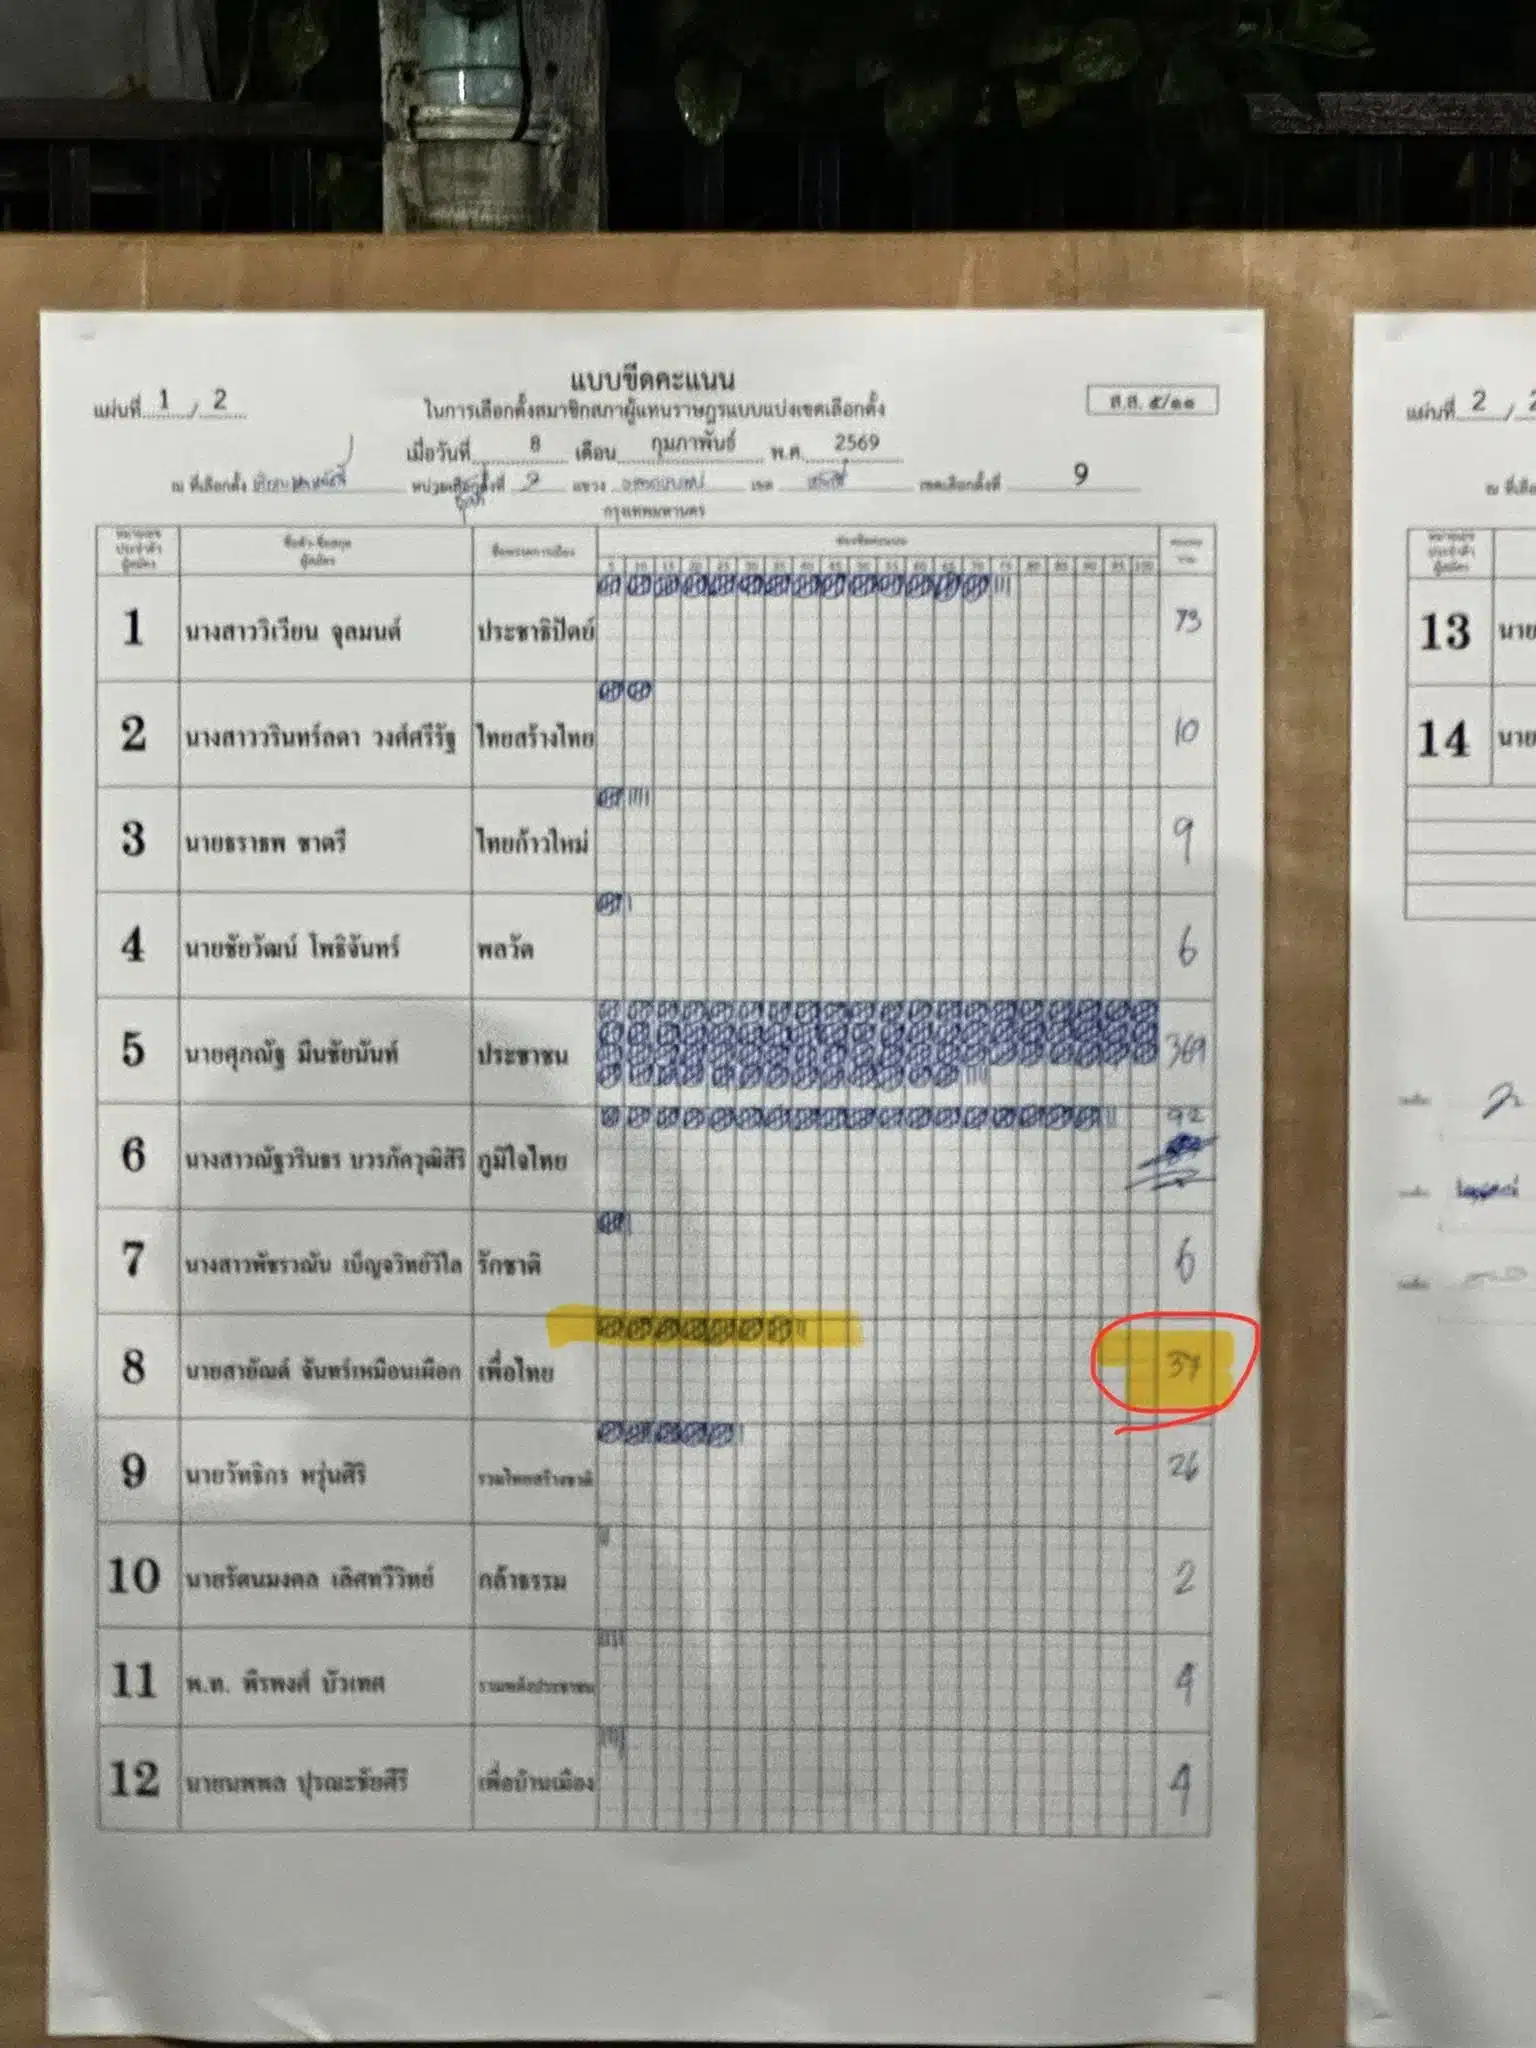 แบบขีดคะแนน
แผ่นที่ 1 / 2
ในการเลือกตั้งสมาชิกสภาผู้แทนราษฎรแบบแบ่งเขตเลือกตั้ง
ส.ส. ๕/๑๑
เมื่อวันที่ 8 เดือน กุมภาพันธ์ พ.ศ. 2569
ณ ที่เลือกตั้ง หน่วยเลือกตั้งที่ แขวง เขต เขตเลือกตั้งที่ 9
กรุงเทพมหานคร
หมายเลขประจำตัวผู้สมัคร ชื่อตัว-ชื่อสกุล ผู้สมัคร ชื่อพรรคการเมือง ช่องขีดคะแนน คะแนนรวม
5 10 15 20 25 30 35 40 45 50 55 60 65 70 75 80 85 90 95 100
1 นางสาววิเวียน จุลมนต์ ประชาธิปัตย์ 73
2 นางสาววรินทร์ลดา วงศ์ศรีรัฐ ไทยสร้างไทย 10
3 นายธราธพ ชาตรี ไทยก้าวใหม่ 9
4 นายชัยวัฒน์ โพธิจันทร์ พลวัต 6
5 นายศุภณัฐ มีนชัยนันท์ ประชาชน 369
6 นางสาวณัฐวรินธร บวรภัควุฒิสิริ ภูมิใจไทย 92
7 นางสาวพัชรวณัน เบ็ญจวิทย์วิไล รักชาติ 6
8 นายสายัณต์ จันทร์เหมือนเผือก เพื่อไทย 37
9 นายวัทธิกร หรุ่นศิริ รวมไทยสร้างชาติ 26
10 นายรัตนมงคล เลิศทวีวิทย์ กล้าธรรม 2
11 พ.ท. พีรพงศ์ บัวเทศ รวมพลังประชาชน 4
12 นายนพพล ปุรณะชัยคีรี เพื่อบ้านเมือง 4
แผ่นที่ 2 /
13 นาย
14 นาย